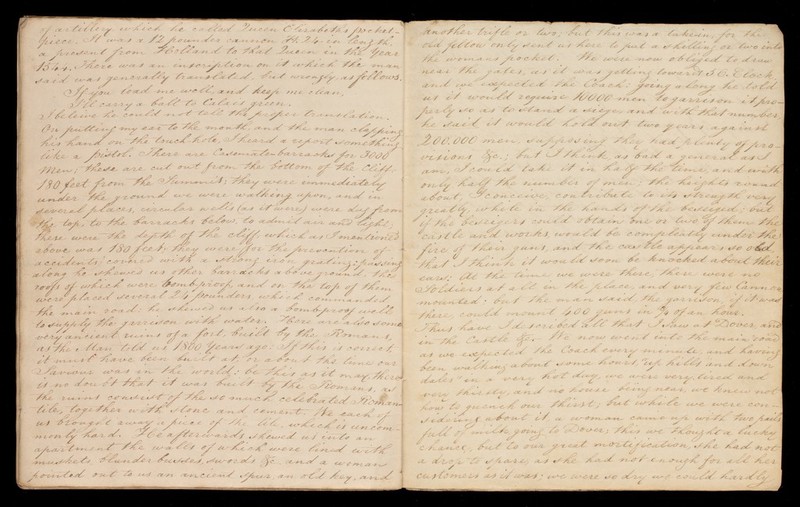 of artillery which he called Queen Elizabeths pocket-
piece. It was a 12 pounder cannon Ft 24 in length,
a present from Holland to that Queen in the Year
1544. There was an inscription on it which the man
said was generally translated, but wrongly as follows.
If you load me well, and keep me clean,
I'll carry a ball to Calais green.
I believe he could not tell the proper translation.
On putting my ear to the mouth, and the man clapping
his hand on the touch hole, I heard a report something
like a pistol. There are Casemates barracks for 3000
Men; these are cut out from the bottom of the Cliff
180 feet from the Summit; they were immediately
under the ground we were walking upon, and in
several places, circular wells (as it were) were dug from
the top, to the barracks below, to admit air and light;
these were the depth of the cliff, which as I mentioned
above was 180 feet; they were for the prevention of
accidents, covered with a strong iron grating: passing
along he shewed us other barracks above ground, the
roofs of which were bombproof, and on the top of them
were placed several 24 pounders, which commanded
the main road. he shewed us also a bombproof well
to supply the garrison with water. There are also some
very ancient ruins of a fort, built by the Romans,
as the Man told us 1800 Years ago. If this is correct,
it must have been built at, or about the time our
Saviour was in the world: be this as it may, there
is no doubt that it was built by the Romans, as
the ruins consist of the so much celebrated Roman
tile, together with stone and cement. We each of
us brought away a piece of the tile, which is uncom-
monly hard. He afterwards shewed us into an
apartment the walls of which were lined with
muskets, blunderbusses, swords &c. and a woman
pointed out to us an ancient spur, an old key, and
another trifle or two; but this was a take in, for the
old fellow only sent us here to put a shilling or two into
the womans pocket. We were now obliged to draw
near the gates, as it was getting towards 3 O'Clock,
and we expected the Coach: going along he told
us it would require 10000 men to garrison it pro-
perly so as to stand a seige, and with that number,
he said, it would hold out two years against
200,000 men, supposing they had plenty of pro-
visions &c.; but I think, as bad a general as I
am, I could take it in half the time, and with
only half the number of men: the heights round
about, I conceive, contribute to its strength very
greatly, while in the hands of the besieged; but
if the besiegers could obtain one or two of them, the
Castle and works, would be completely under the
fire of their guns, and the castle appears so old,
that I think it would soon be knocked about their
ears. At the time we were there, there were no
Soldiers at all in the place, and very few Cannon
mounted: but the man said the garrison, if it was
there, could mount 400 guns in 3/4 of an hour.
Thus have I described all that I saw at Dover, and
in the Castle &c. We now went into the main road
as we expected the Coach every minute, and having
been walking about some hours, "up hills and down
dales" in a very hot day, we were very tired and
very thirsty, and no house being near, we knew not
how to quench our thirst; but while we were con-
sidering about it, a woman came up with two pails
full of milk going to Dover; this we thought a lucky
chance, but to our great mortification, she had not
a drop to spare, as she had not enough for all her
customers as it was; we were so dry we could hardly